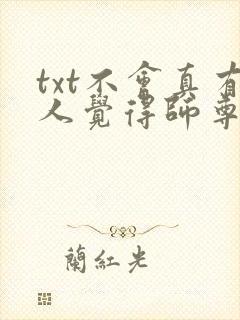 txt不會真有
人覺得師尊
蘭紅光